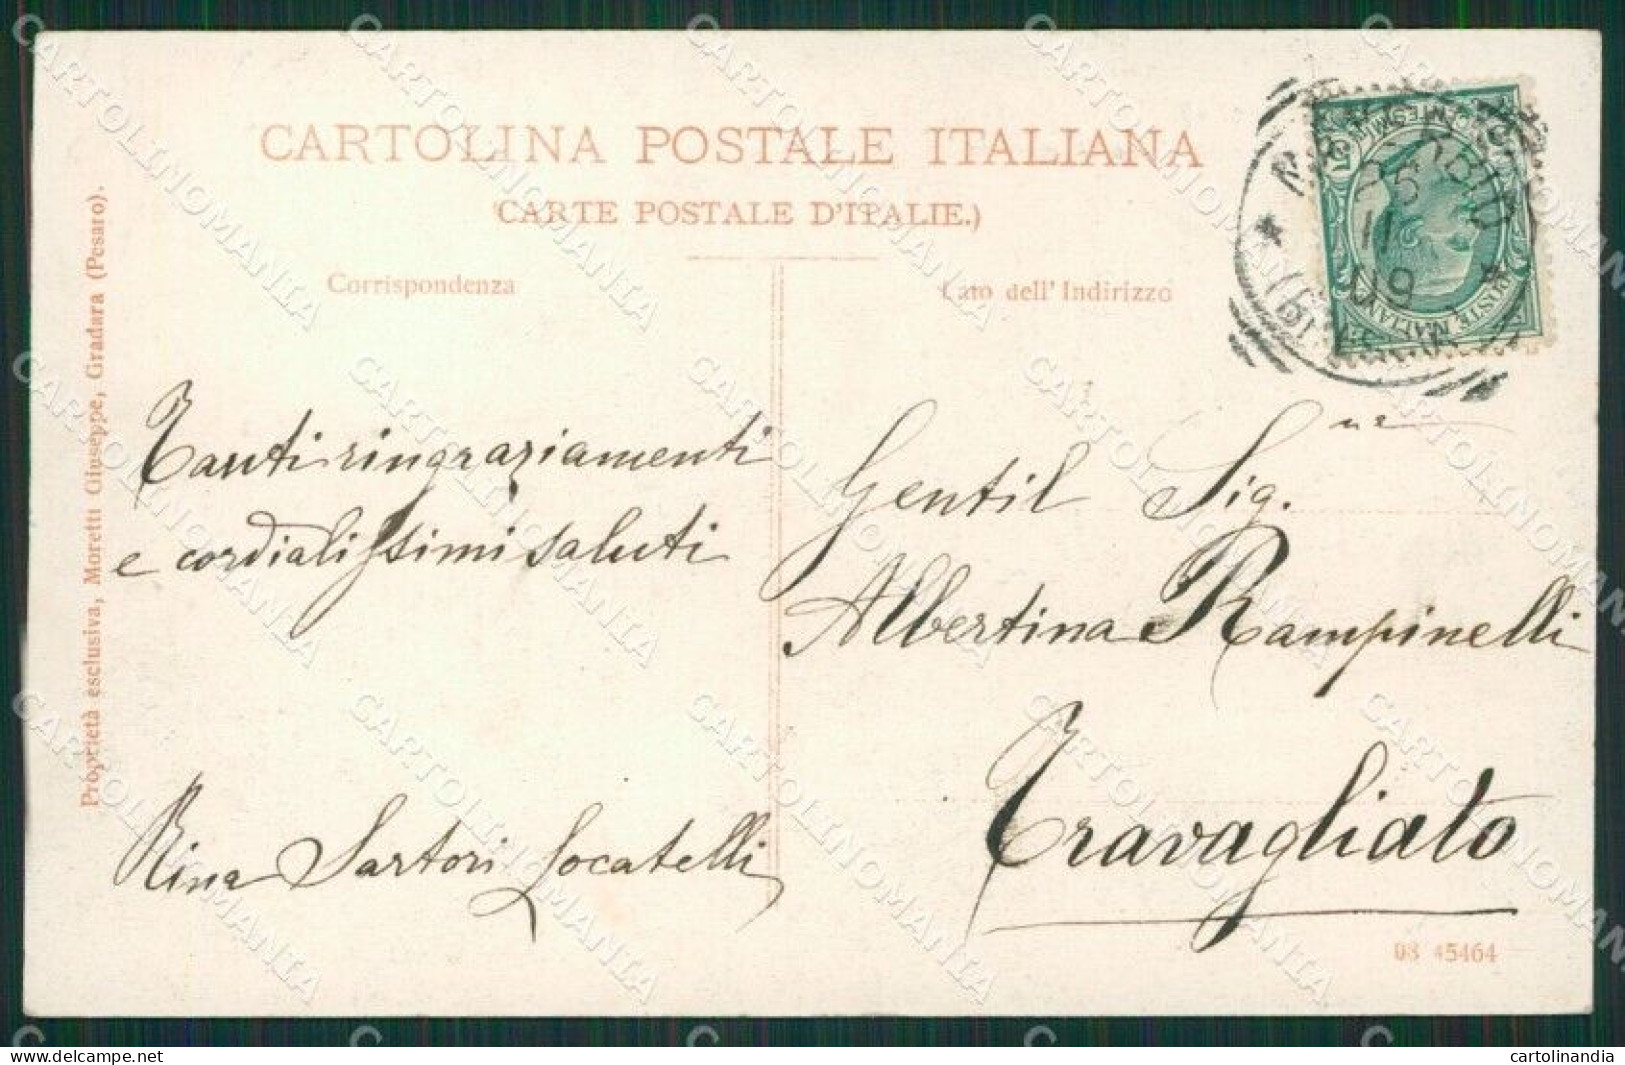 CARTOLINA POSTALE ITALIANA
(CARTE POSTALE D'ITALIE.)
Corrispondenza
Lato dell' Indirizzo
Proprietà esclusiva, Moretti Giuseppe, Gradara (Pesaro).
25
11
09
POSTE ITALIANE
Tanti ringraziamenti
e cordialissimi saluti
Rina Sartori Locatelli
Gentil Sig.na
Albertina Rampinelli
Travagliato
08 45464
CARTOLINOMANIA
https://www.delcampe.net
cartolinandia